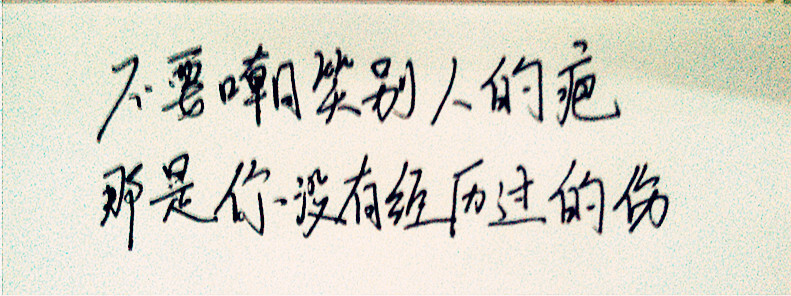 不要嘲笑别人的疤
那是你没有经历过的伤